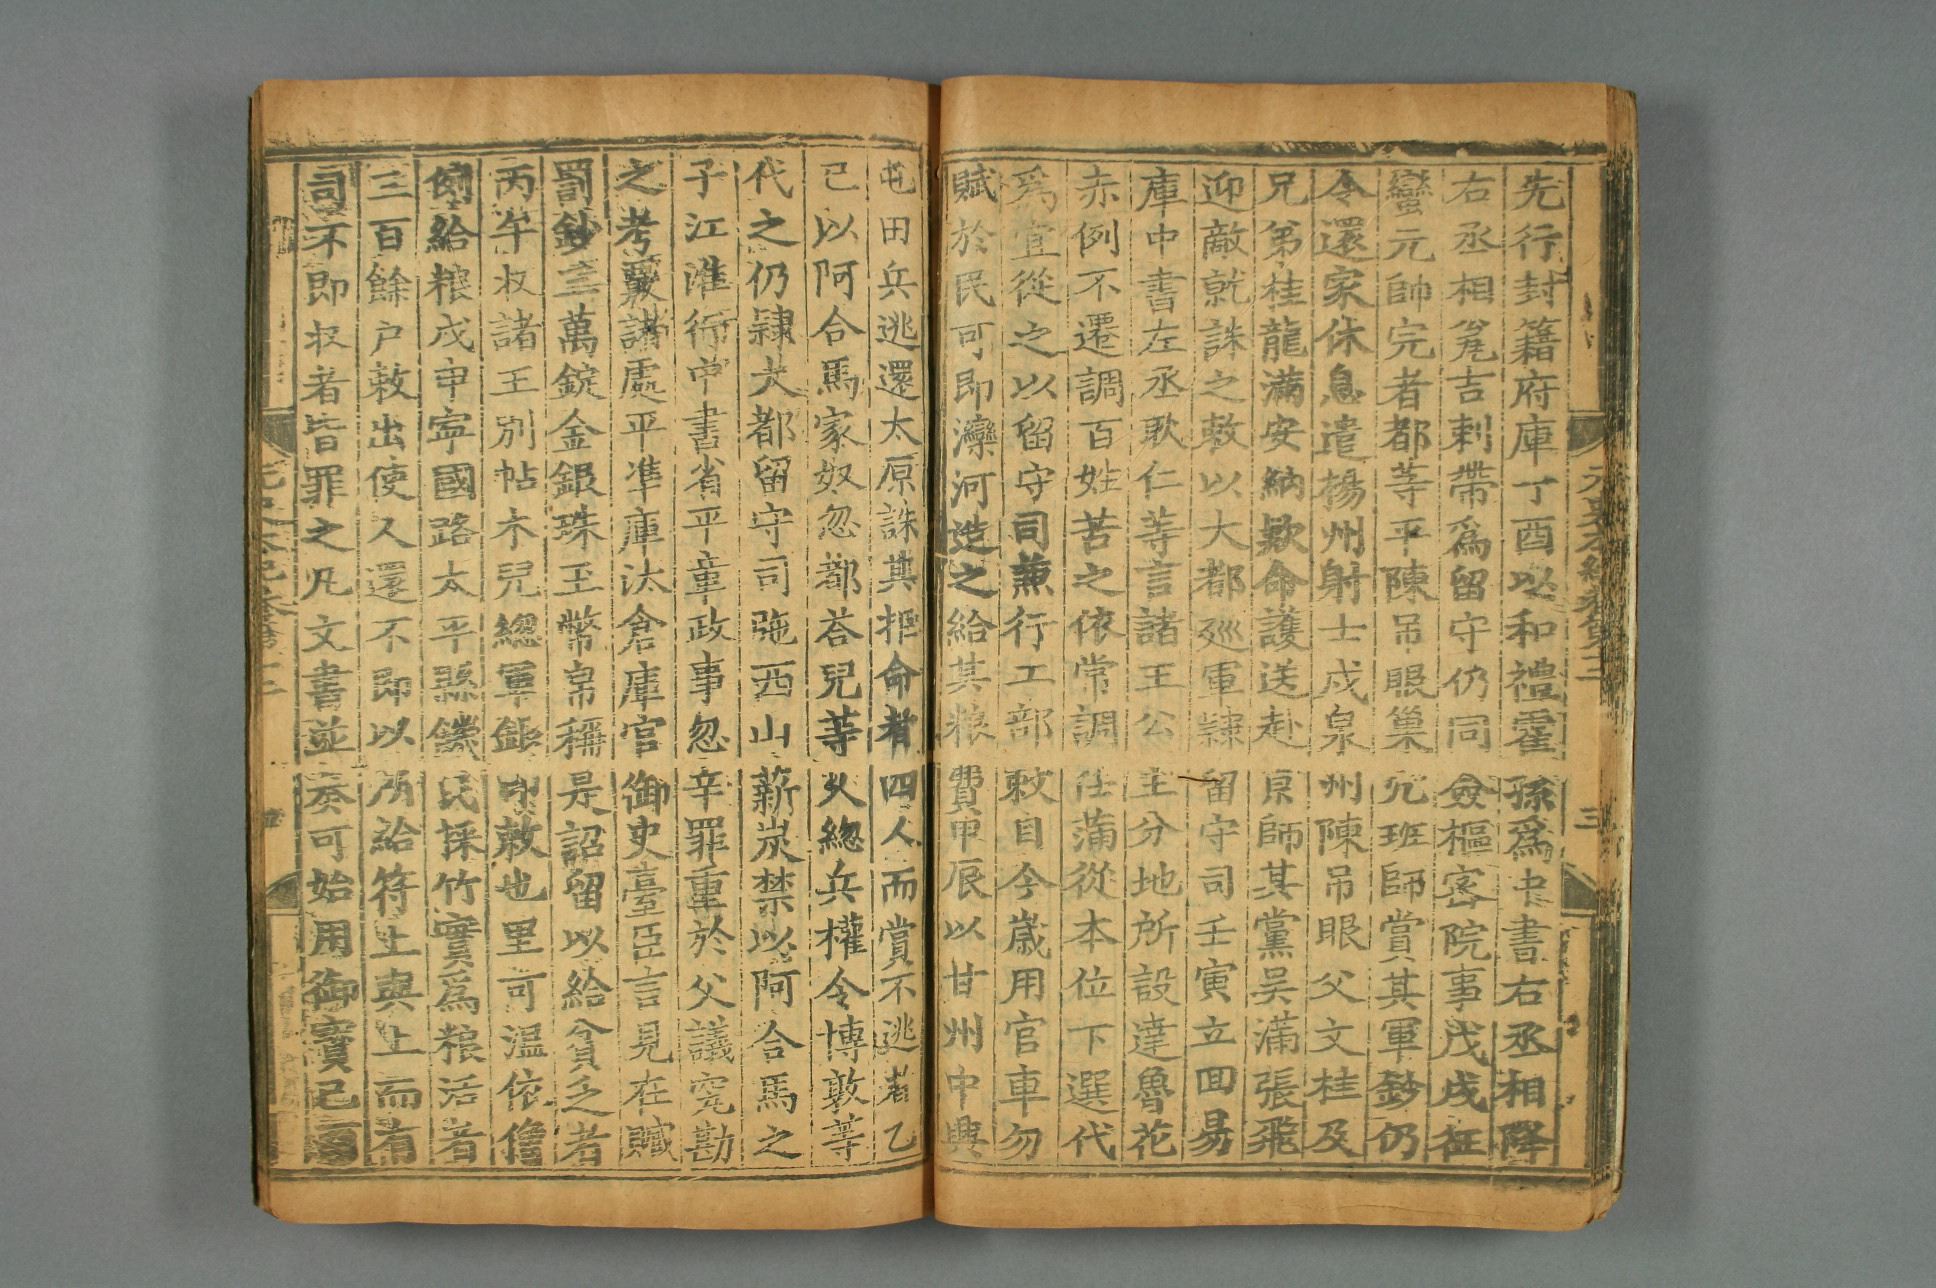 元史本紀卷第十二
三
先行封籍府庫丁酉以和禮霍孫爲中書右丞相降
右丞相瓮吉剌帶爲留守仍同僉樞密院事戊戌征
蠻元帥完者都等平陳吊眼巢穴班師賞其軍鈔仍
令還家休息遣楊州射士戍泉州陳吊眼父文桂及
兄弟桂龍滿安納欵命護送赴京師其黨吳滿張飛
迎敵就誅之敕以大都巡軍隸留守司壬寅立回易
庫中書左丞耿仁等言諸王公主分地所設達魯花
赤例不遷調百姓苦之依常調任蒲從本位下選代
爲宜從之以留守司兼行工部敕自今歲用官車勿
賦於民可即灤河造之給其粮費甲辰以甘州中興
屯田兵逃還太原誅其拒命者四人而賞不逃者乙
已以阿合馬家奴忽都荅兒等乆總兵權令博敦等
代之仍隷大都留守司弛西山薪炭禁以阿合馬之
子江淮行中書省平章政事忽辛罪重於父議究勘
之考覈諸處平準庫汰倉庫官御史臺臣言見在贓
罰鈔三萬錠金銀珠玉幣帛稱是詔留以給貧乏者
丙午收諸王別帖木兒總軍銀印敕也里可温依僧
例給粮戊申寧國路太平縣饑民採竹實爲粮活者
三百餘户敕出使人還不即以所給符上與上而有
司不即收者皆罪之凡文書並奏可始用御寳己酉